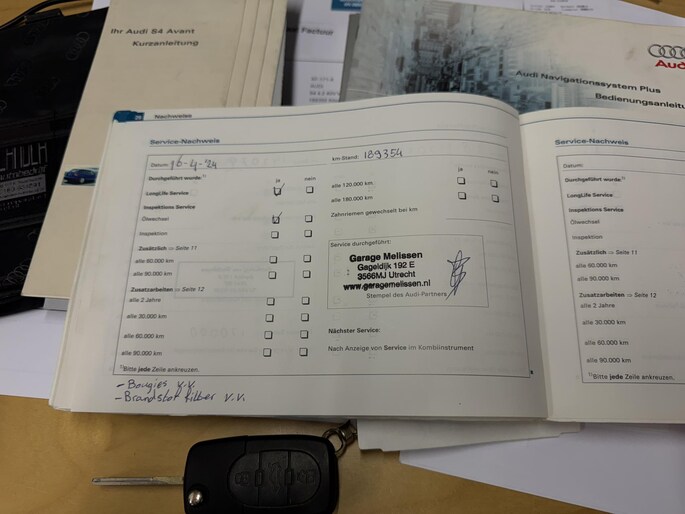 Ihr Audi S4 Avant
Kurzanleitung
Factuur
Audi
Audi Navigationssystem Plus
Bedienungsanleitung
Nachweise
Service-Nachweis
Datum: 16-4-24
km-Stand: 189354
Durchgeführt wurde:¹⁾
ja nein
ja nein
LongLife Service
alle 120.000 km
Inspektions Service
alle 180.000 km
Ölwechsel
Zahnriemen gewechselt bei km
Inspektion
Zusätzlich ⇒ Seite 11
alle 60.000 km
alle 90.000 km
Zusatzarbeiten ⇒ Seite 12
alle 2 Jahre
alle 30.000 km
alle 60.000 km
alle 90.000 km
¹⁾Bitte jede Zeile ankreuzen.
Service durchgeführt:
Garage Melissen
Gageldijk 192 E
3566MJ Utrecht
www.garagemelissen.nl
Stempel des Audi-Partners
Nächster Service:
Nach Anzeige von Service im Kombiinstrument
- Bougies v.v.
- Brandstof filter v.v.
Service-Nachweis
Datum:
Durchgeführt wurde:¹⁾
LongLife Service
Inspektions Service
Ölwechsel
Inspektion
Zusätzlich ⇒ Seite 11
alle 60.000 km
alle 90.000 km
Zusatzarbeiten ⇒ Seite 12
alle 2 Jahre
alle 30.000 km
alle 60.000 km
alle 90.000 km
¹⁾Bitte jede Zeile ankreuzen.